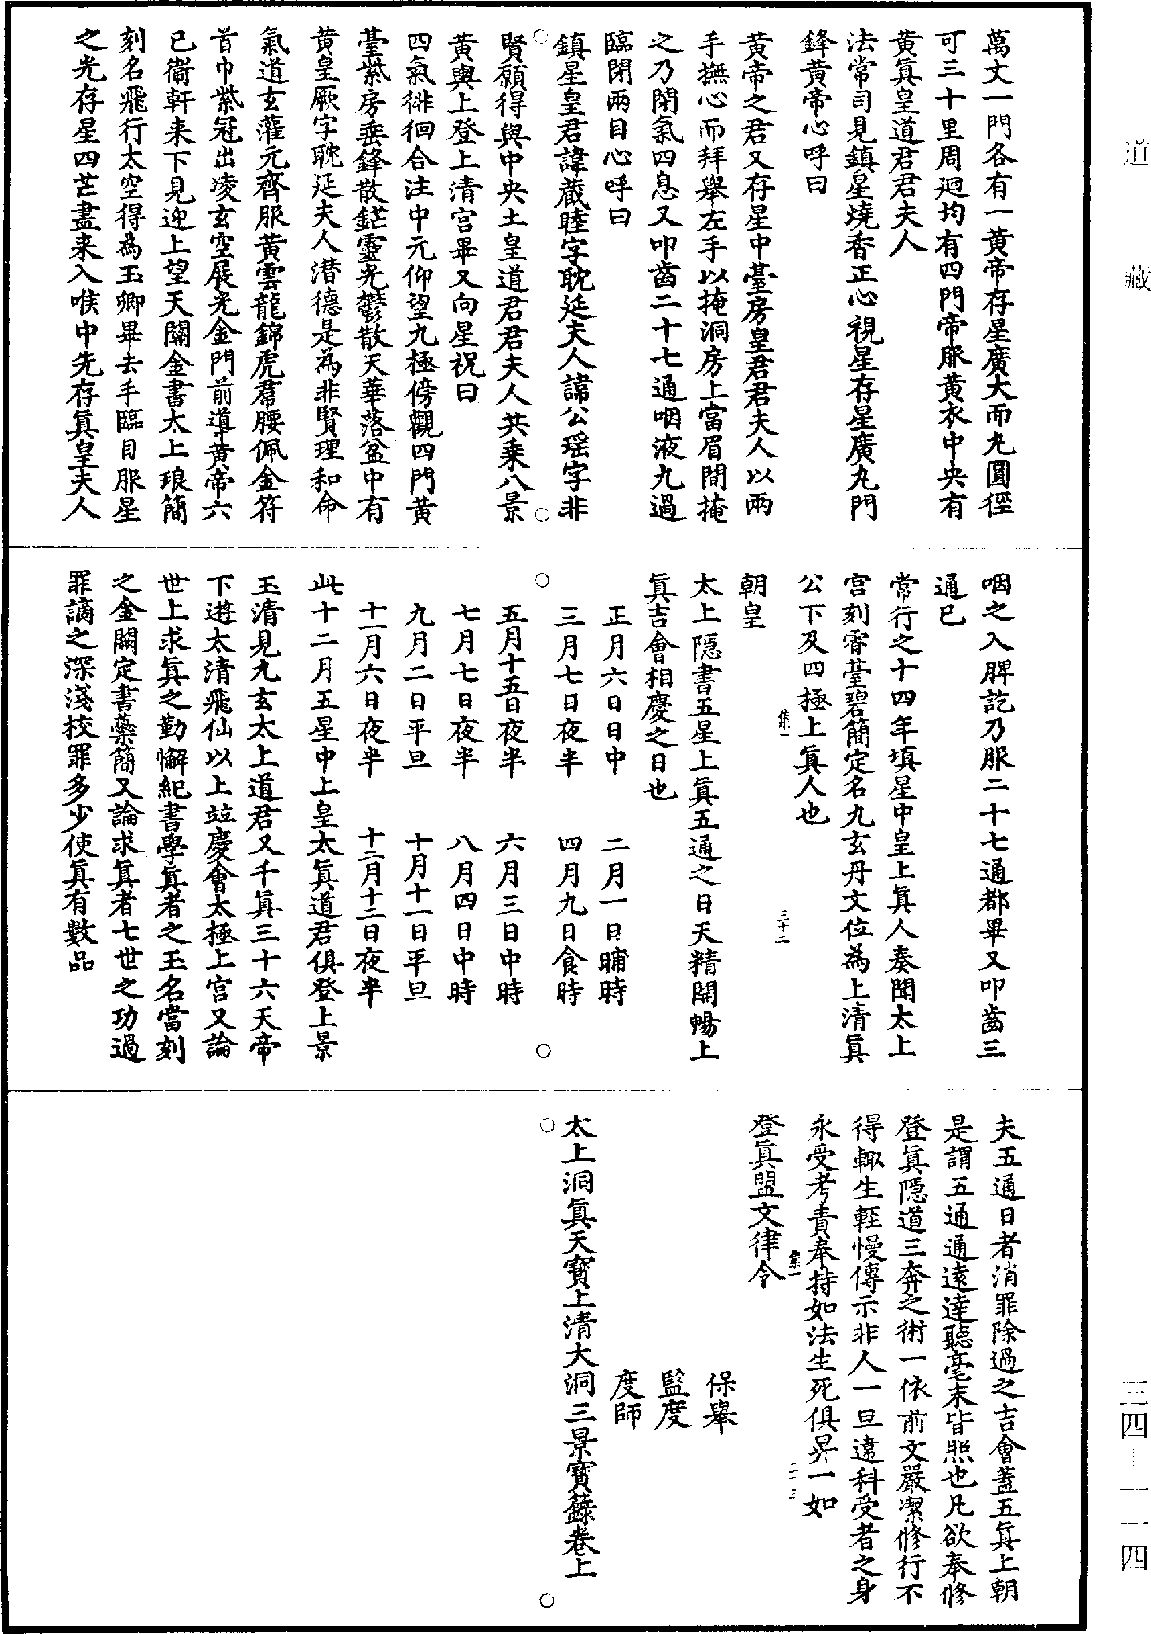 道藏
萬丈一門各有一黃帝存星廣大而九圓徑
可三十里周迴均有四門帝服黃衣中央有
黃眞皇道君君夫人
法常司見鎮星燒香正心視星存星廣九門
鋒黃帝心呼曰
黃帝之君又存星中臺房皇君君夫人以兩
手撫心而拜舉左手以掩洞房上當眉間掩
之乃閉氣四息又叩齒二十七通咽液九過
臨閉兩目心呼曰
鎮星皇君諱藏睦字耽延夫人諱公瑶字非
賢願得與中央土皇道君君夫人共乘八景
黃輿上登上清宮畢又向星祝曰
四氣徘徊合注中元仰望九極傍觀四門黃
臺紫房垂鋒散鋩靈光鬱散天華落盆中有
黃皇厥字耽延夫人潜德是為非賢理和命
氣道玄灌元齊服黃雲龍錦虎帬腰佩金符
首巾紫冠出凌玄空展光金門前導黃帝六
已衛軒来下見迎上望天關金書太上琅簡
刻名飛行太空得為玉卿畢去手臨目服星
之光存星四芒盡来入喉中先存眞皇夫人
咽之入脾訖乃服二十七通都畢又叩齒三
通巳
常行之十四年填星中皇上眞人奏聞太上
宮刻霄臺碧簡定名九玄丹文位為上清眞
公下及四極上眞人也
朝皇
太上隱書五星上眞五通之日天精開暢上
眞吉會相慶之日也
正月六日日中 二月一日晡時
三月七日夜半 四月九日食時
五月十五日夜半 六月三日中時
七月七日夜半 八月四日中時
九月二日平旦 十月十一日平旦
十一月六日夜半 十二月十二日夜半
此十二月五星中上皇太眞道君俱登上景
玉清見九玄太上道君又千眞三十六天帝
下遊太清飛仙以上竝慶會太極上宮又論
世上求眞之勤懈紀書學眞者之玉名當刻
之金闕定書蘂簡又論求眞者七世之功過
罪謫之深淺挍罪多少使眞有數品
夫五通日者消罪除過之吉會蓋五眞上朝
是謂五通通遠達聽毫末皆照也凡欲奉修
登眞隱道三奔之術一依前文嚴潔修行不
得輙生輕慢傳示非人一旦違科受者之身
永受考責奉持如法生死俱昇一如
登眞盟文律令
保舉
監度
度師
太上洞眞天寶上清大洞三景寶籙卷上
三四—一一四